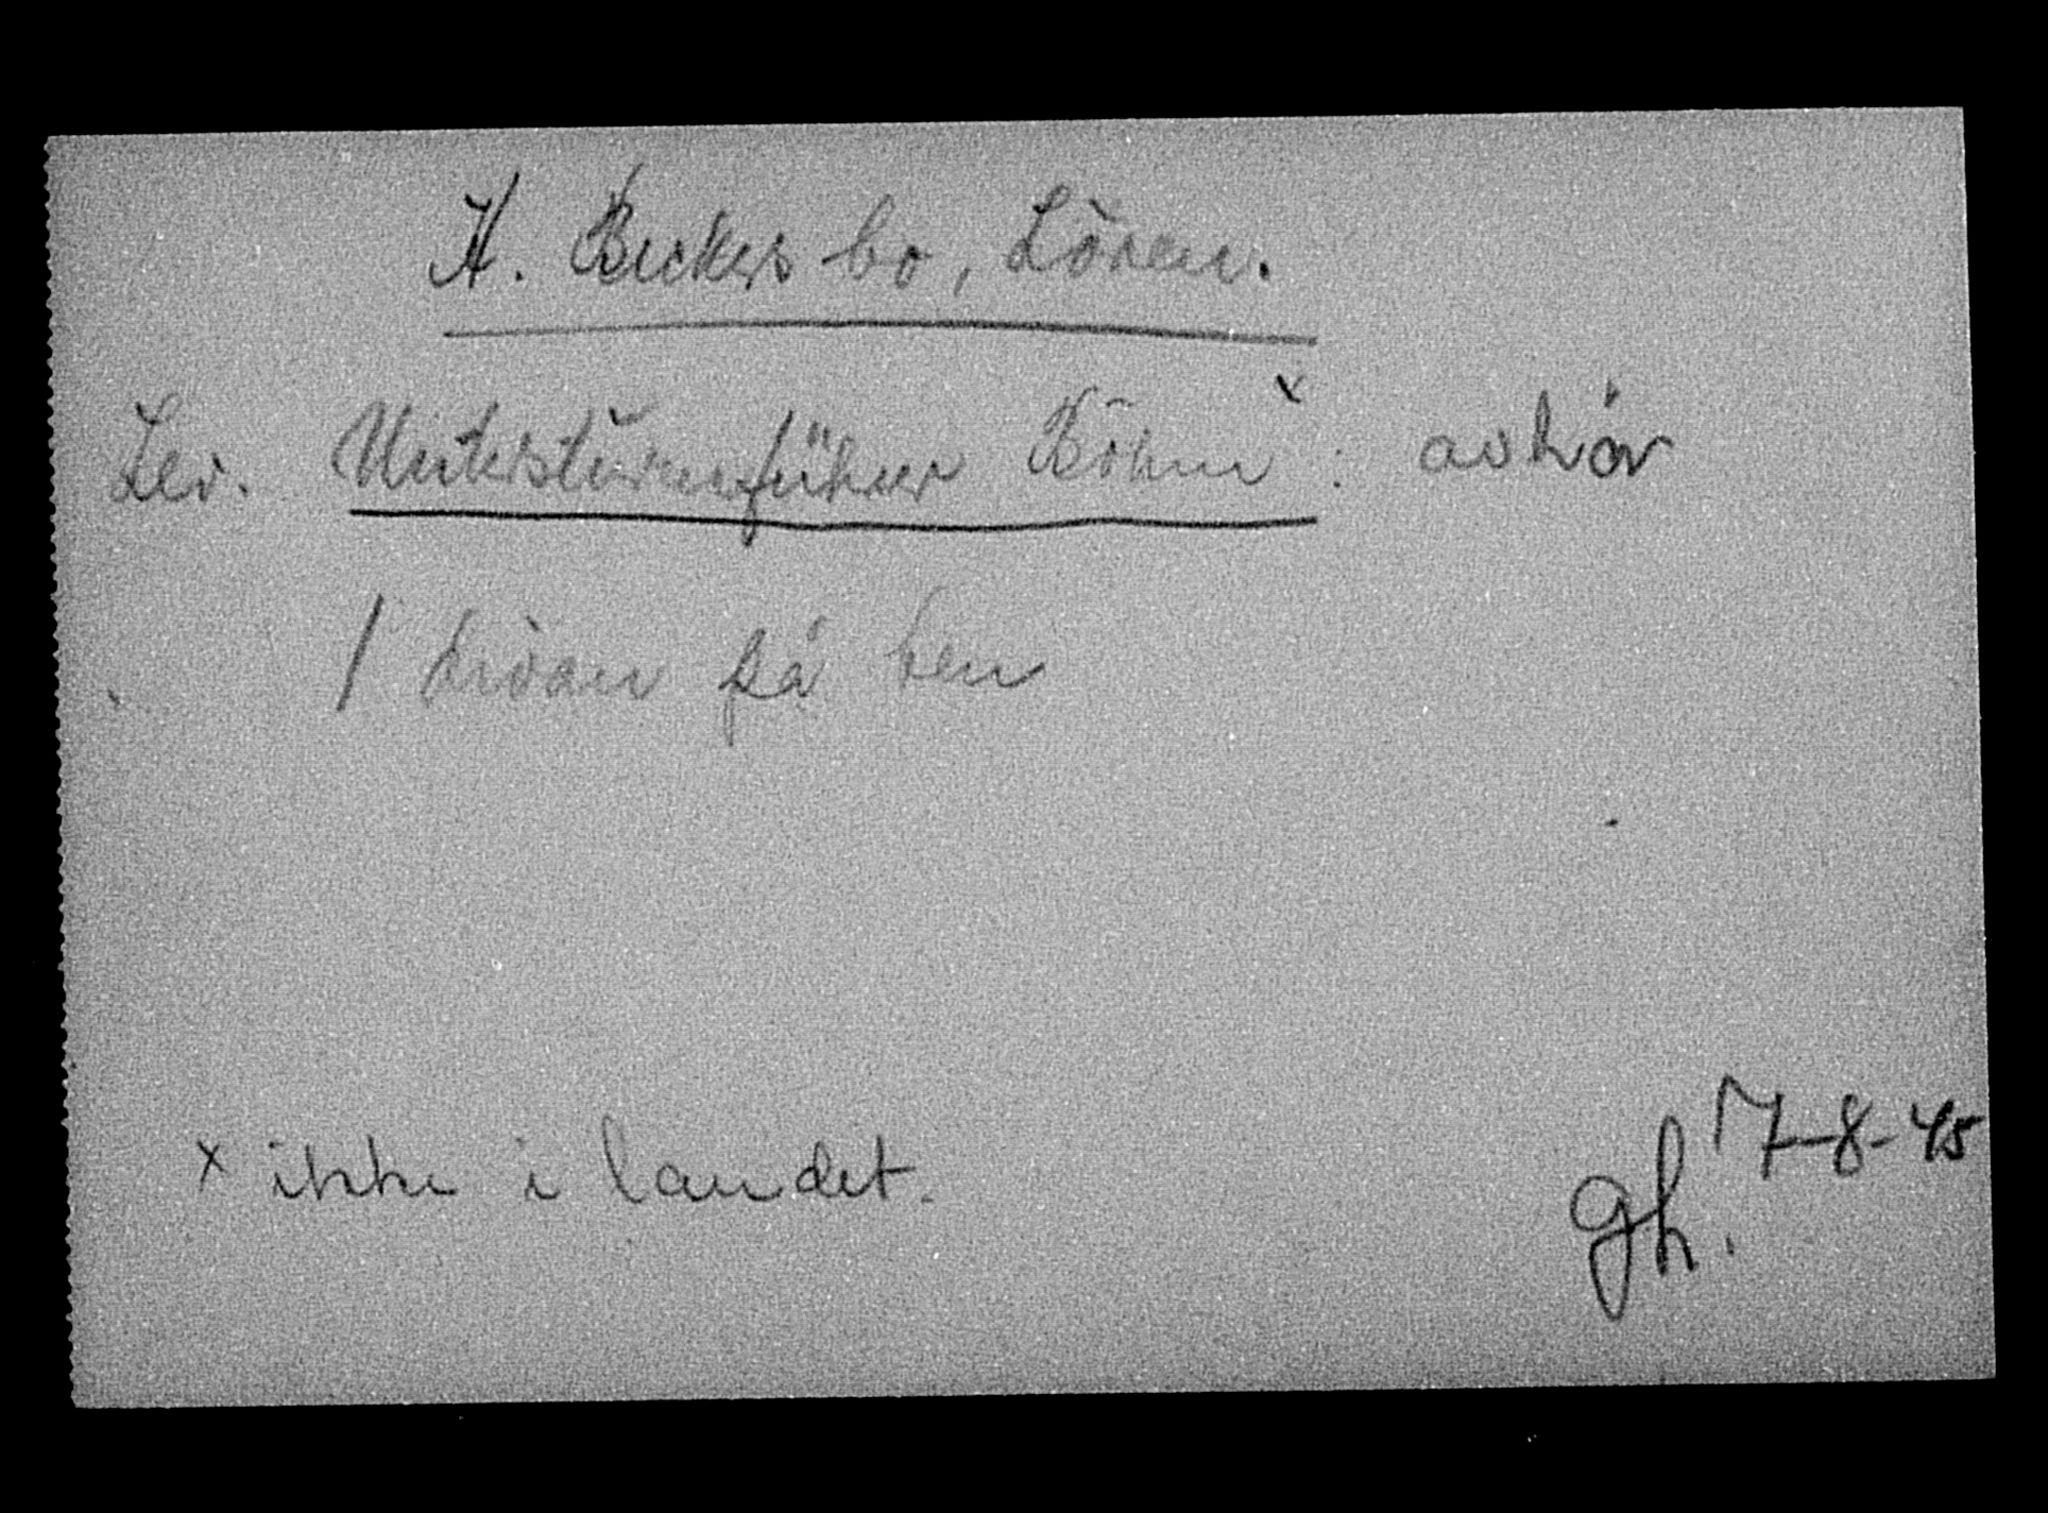 H. Beckers bo, Lören.
Lev. Untersturmführer Böhm x : avhør
1 divan på ben
x ikke i landet.
7-8-45
gh.